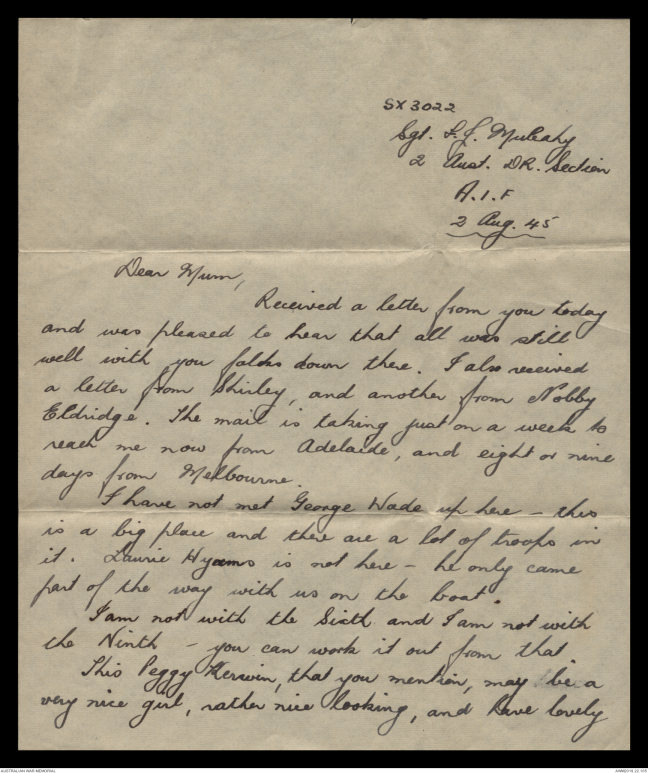 SX3022
Sgt. L.J. Mulcahy
2 Aust. DR. Section
A.I.F
2 Aug. 45
Dear Mum,
Received a letter from you today
and was pleased to hear that all was still
well with you folks down there. I also received
a letter from Shirley, and another from Nobby
Eldridge. The mail is taking just on a week to
reach me now from Adelaide, and eight or nine
days from Melbourne.
I have not met George Wade up here - this
is a big place and there are a lot of troops in
it. Laurie Hyams is not here - he only came
part of the way with us on the boat.
I am not with the Sixth and I am not with
the Ninth - you can work it out from that.
This Peggy Kerwin, that you mention, may be a
very nice girl, rather nice looking, and have lovely
AUSTRALIAN WAR MEMORIAL